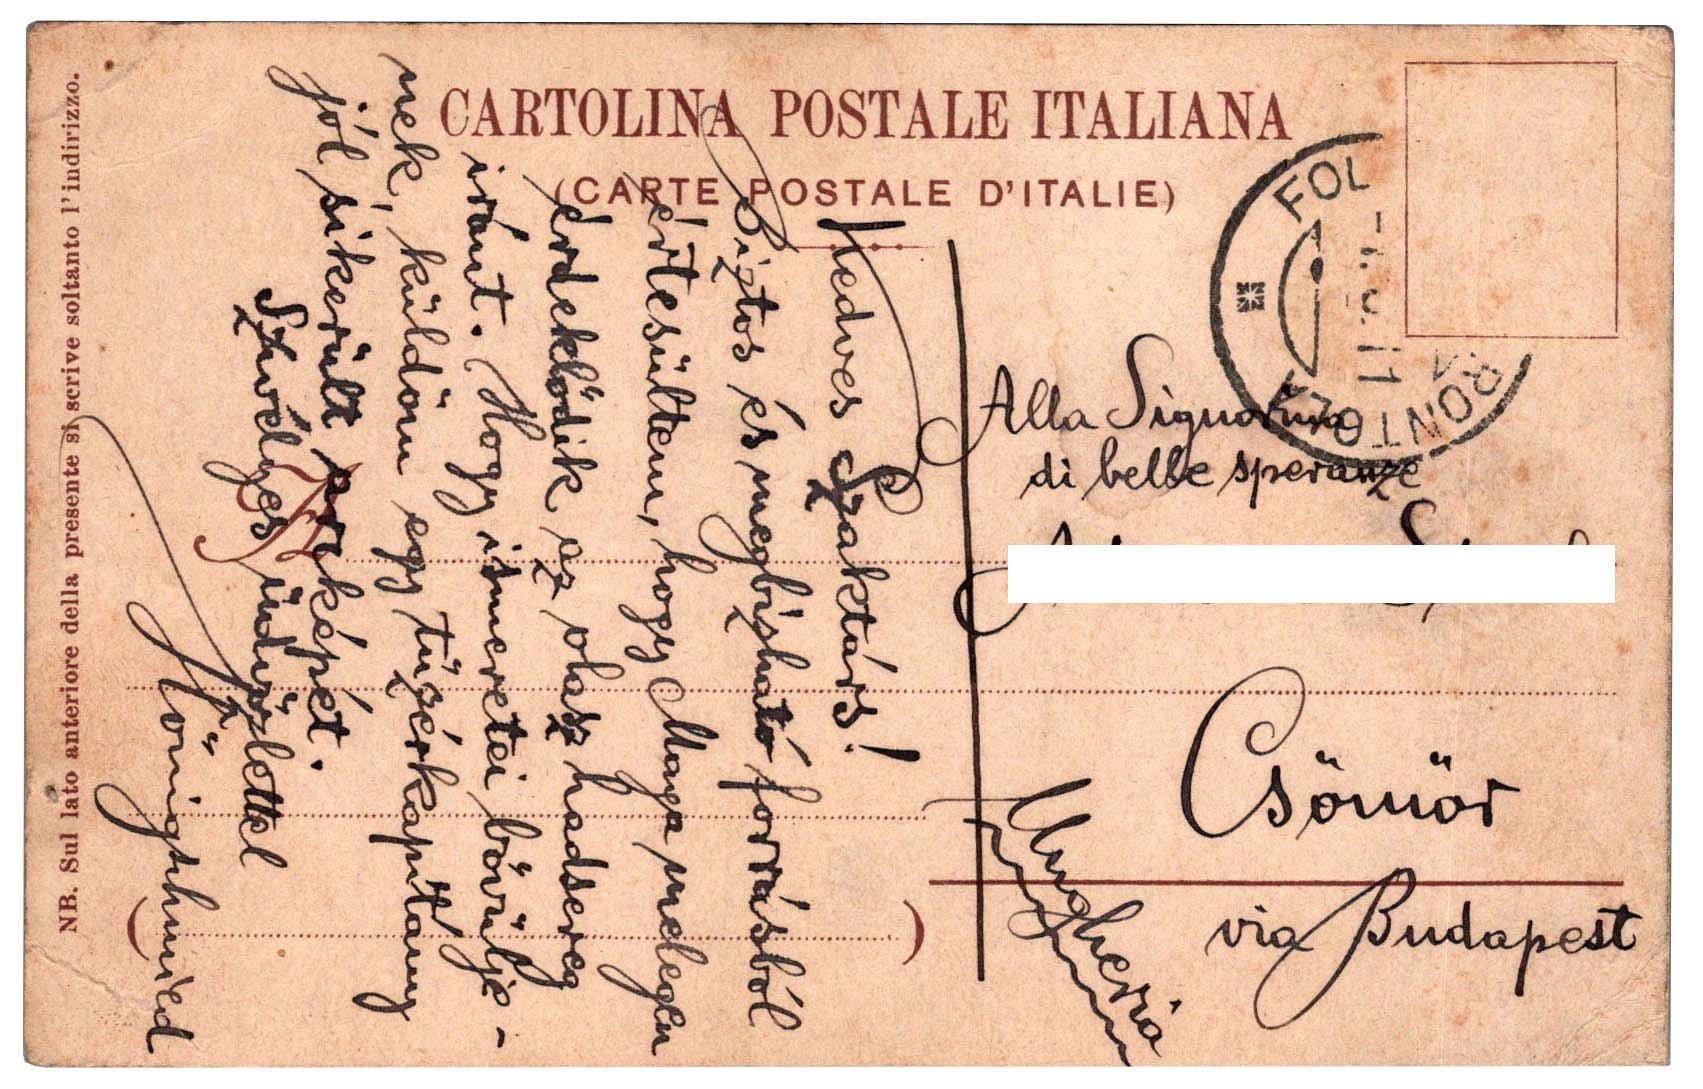 CARTOLINA POSTALE ITALIANA
(CARTE POSTALE D'ITALIE)
NB. Sul lato anteriore della presente si scrive soltanto l'indirizzo.
Kedves Szaktárs!
Biztos és megbízható forrásból
értesültem, hogy Maga melegen
érdeklődik az olasz hadsereg
iránt. Hogy ismeretei bővülje-
nek, küldöm egy tüzérkapitány
jól sikerült arcképét.
Szívélyes üdvözlettel
FOL
RONTOLA
Alla Signorina
di belle speranze
Csömör
via Budapest
Ungheria